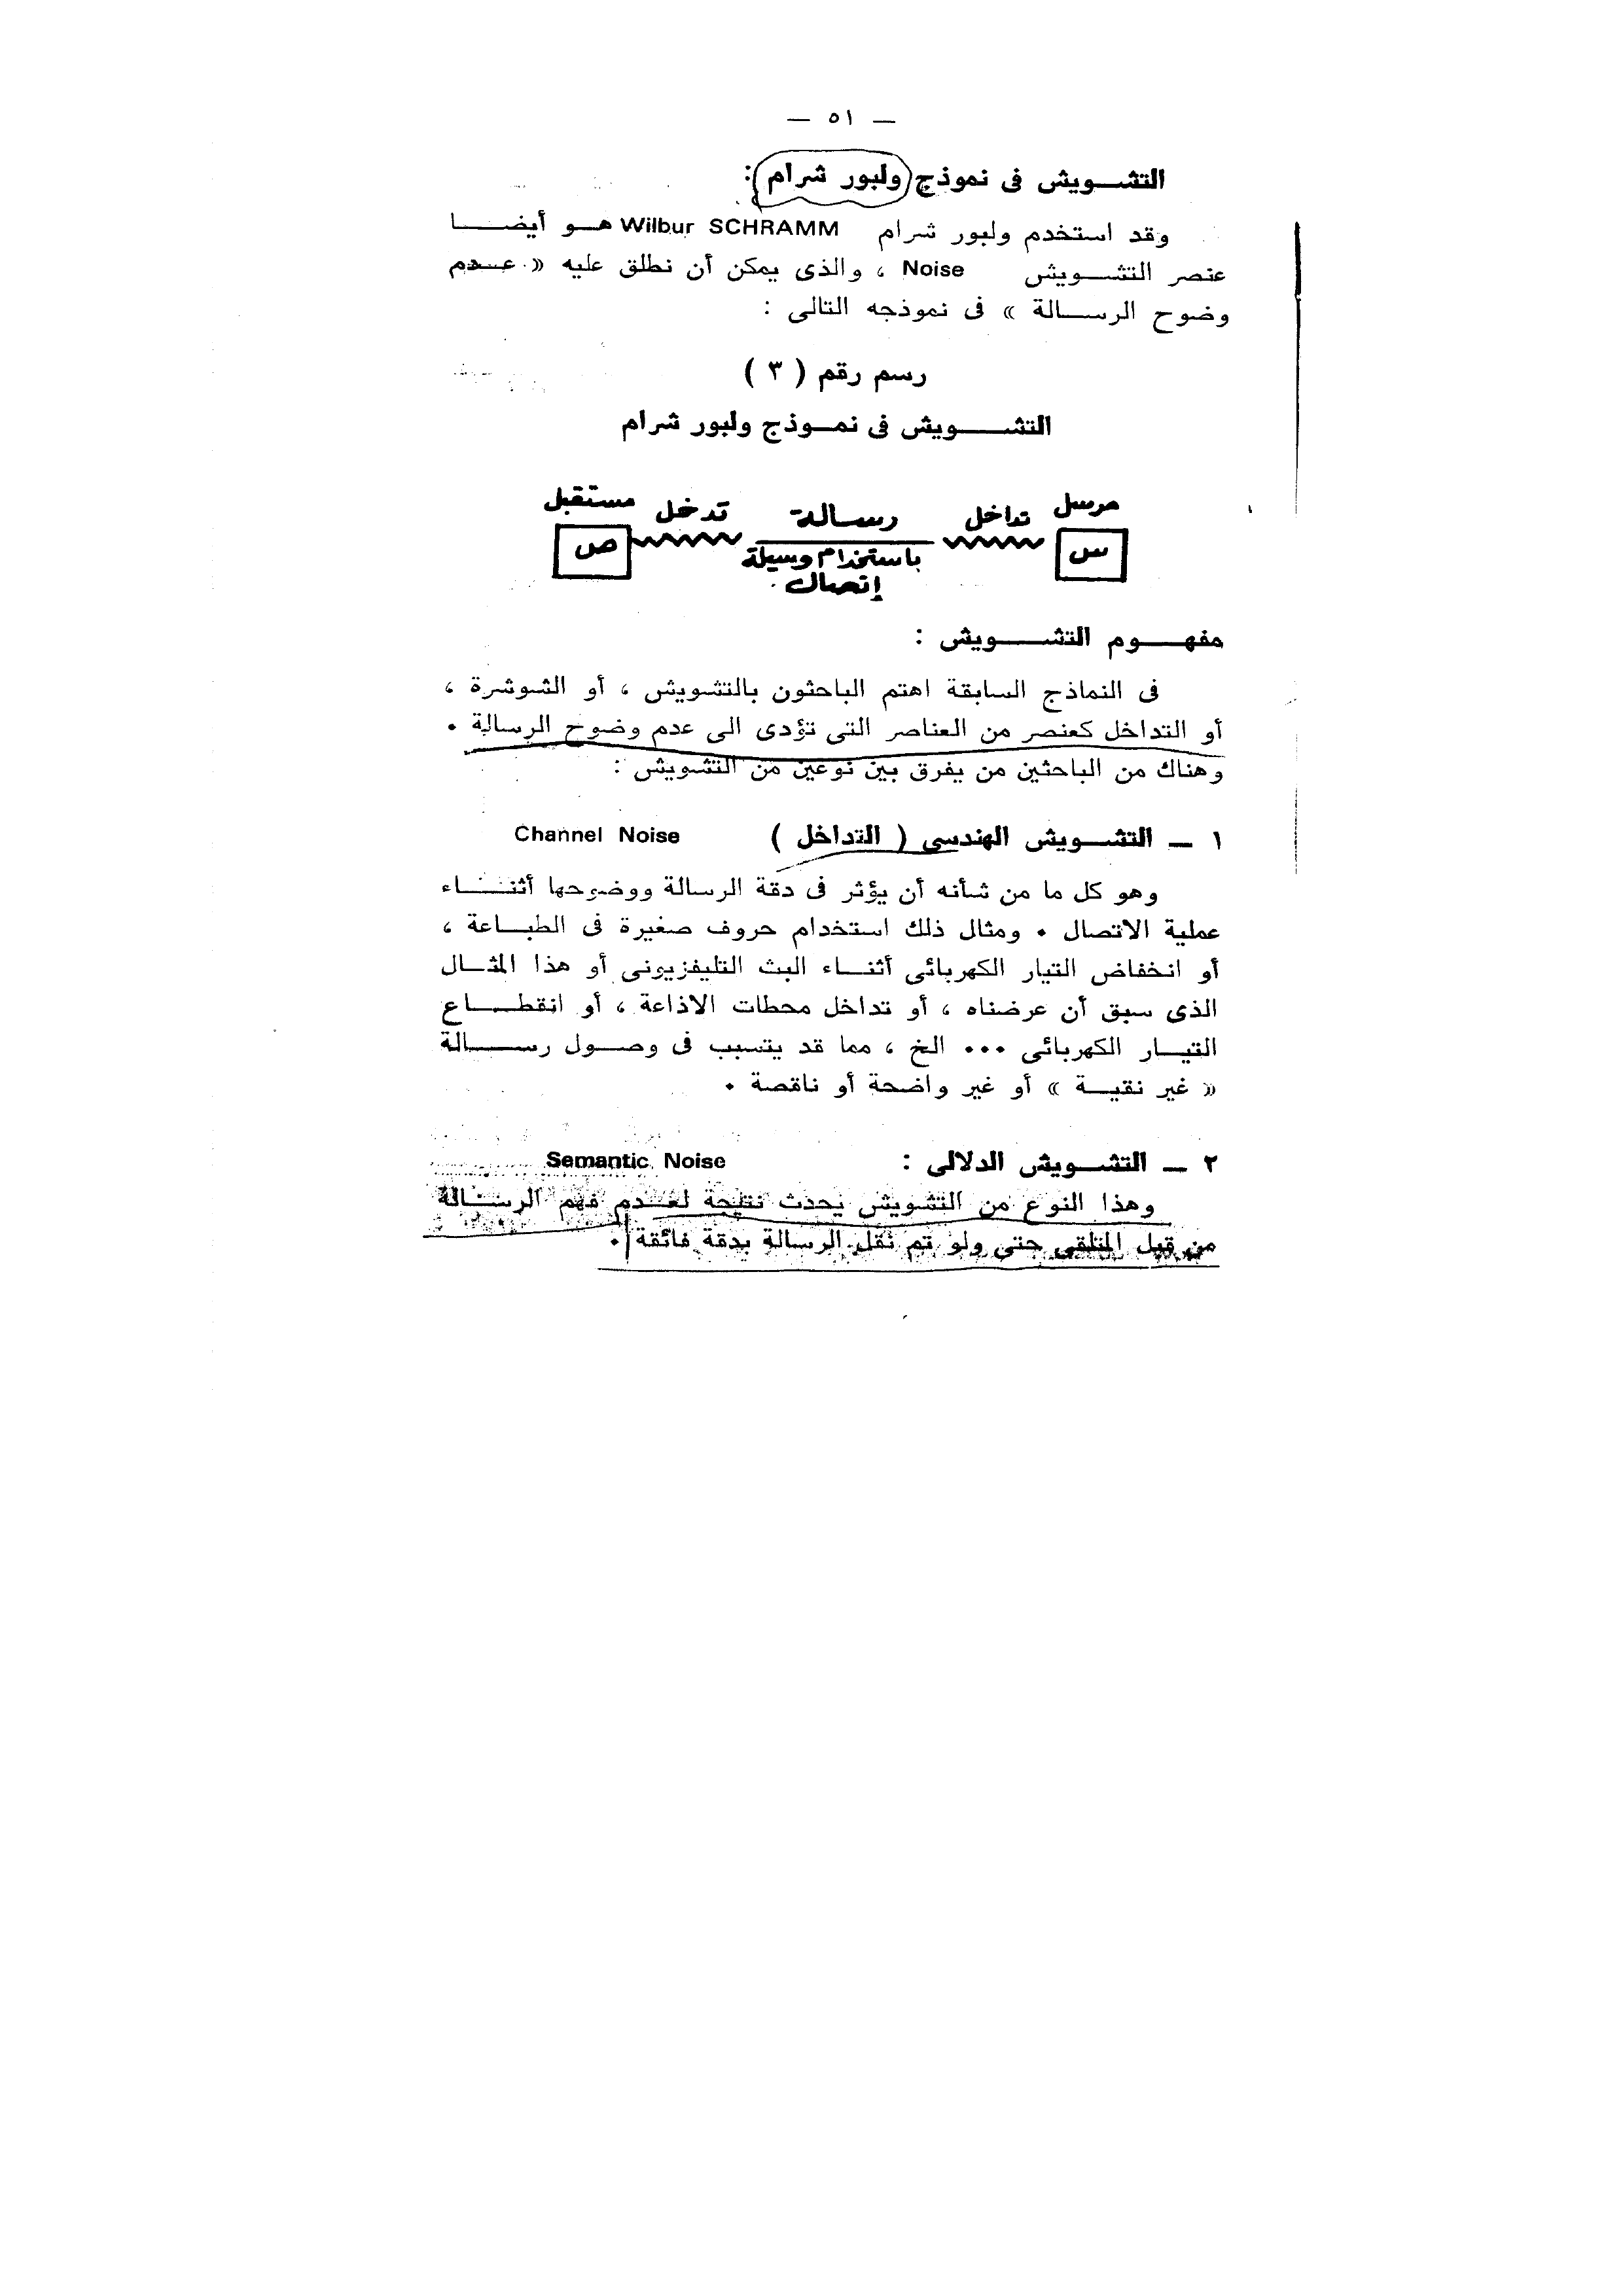 — ٥١ —
التشويش فى نموذج (ولبور شرام) :
وقد استخدم ولبور شرام Wilbur SCHRAMM هو أيضا
عنصر التشويش Noise ، والذى يمكن أن نطلق عليه « عدم
وضوح الرسالة » فى نموذجه التالى :
رسم رقم ( ٣ )
التشويش فى نموذج ولبور شرام
مرسل تداخل رسالة تدخل مستقبل
س باستخدام وسيلة ص
إتصال
مفهوم التشويش :
فى النماذج السابقة اهتم الباحثون بالتشويش ، أو الشوشرة ،
أو التداخل كعنصر من العناصر التى تؤدى الى عدم وضوح الرسالة .
وهناك من الباحثين من يفرق بين نوعين من التشويش :
١ — التشويش الهندسى ( التداخل ) Channel Noise
وهو كل ما من شأنه أن يؤثر فى دقة الرسالة ووضوحها أثناء
عملية الاتصال . ومثال ذلك استخدام حروف صغيرة فى الطباعة ،
أو انخفاض التيار الكهربائى أثناء البث التليفزيونى أو هذا المثال
الذى سبق أن عرضناه ، أو تداخل محطات الاذاعة ، أو انقطاع
التيار الكهربائى ... الخ ، مما قد يتسبب فى وصول رسالة
« غير نقية » أو غير واضحة أو ناقصة .
٢ — التشويش الدلالى : Semantic Noise
وهذا النوع من التشويش يحدث نتيجة لعدم فهم الرسالة
من قبل المتلقى حتى ولو تم نقل الرسالة بدقة فائقة .